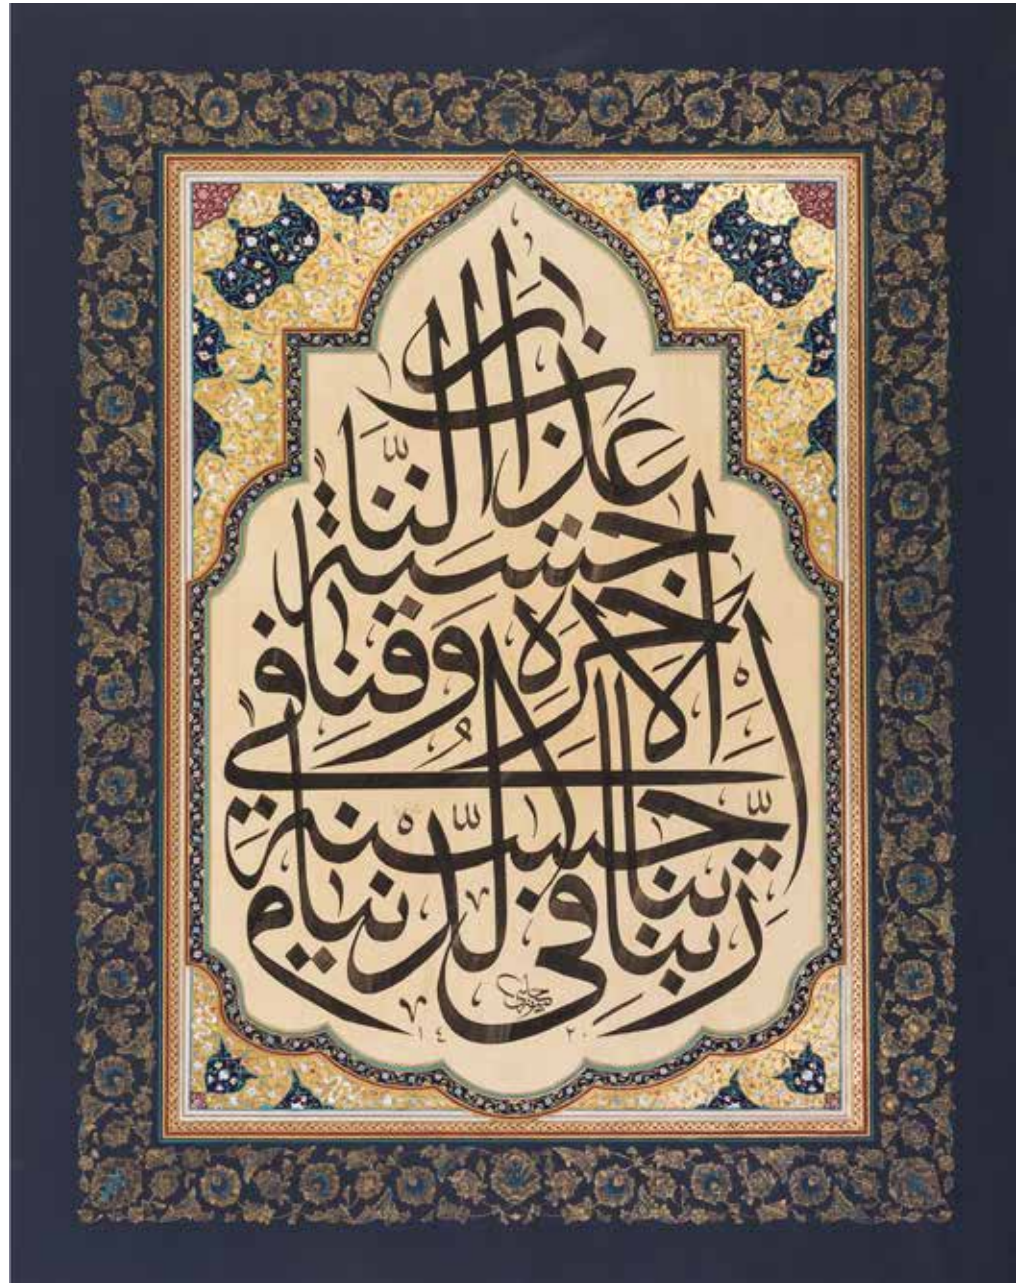 ربنا آتنا في الدنيا
حسنة وفي
الآخرة حسنة وقنا
عذاب النار
١٤٢٠